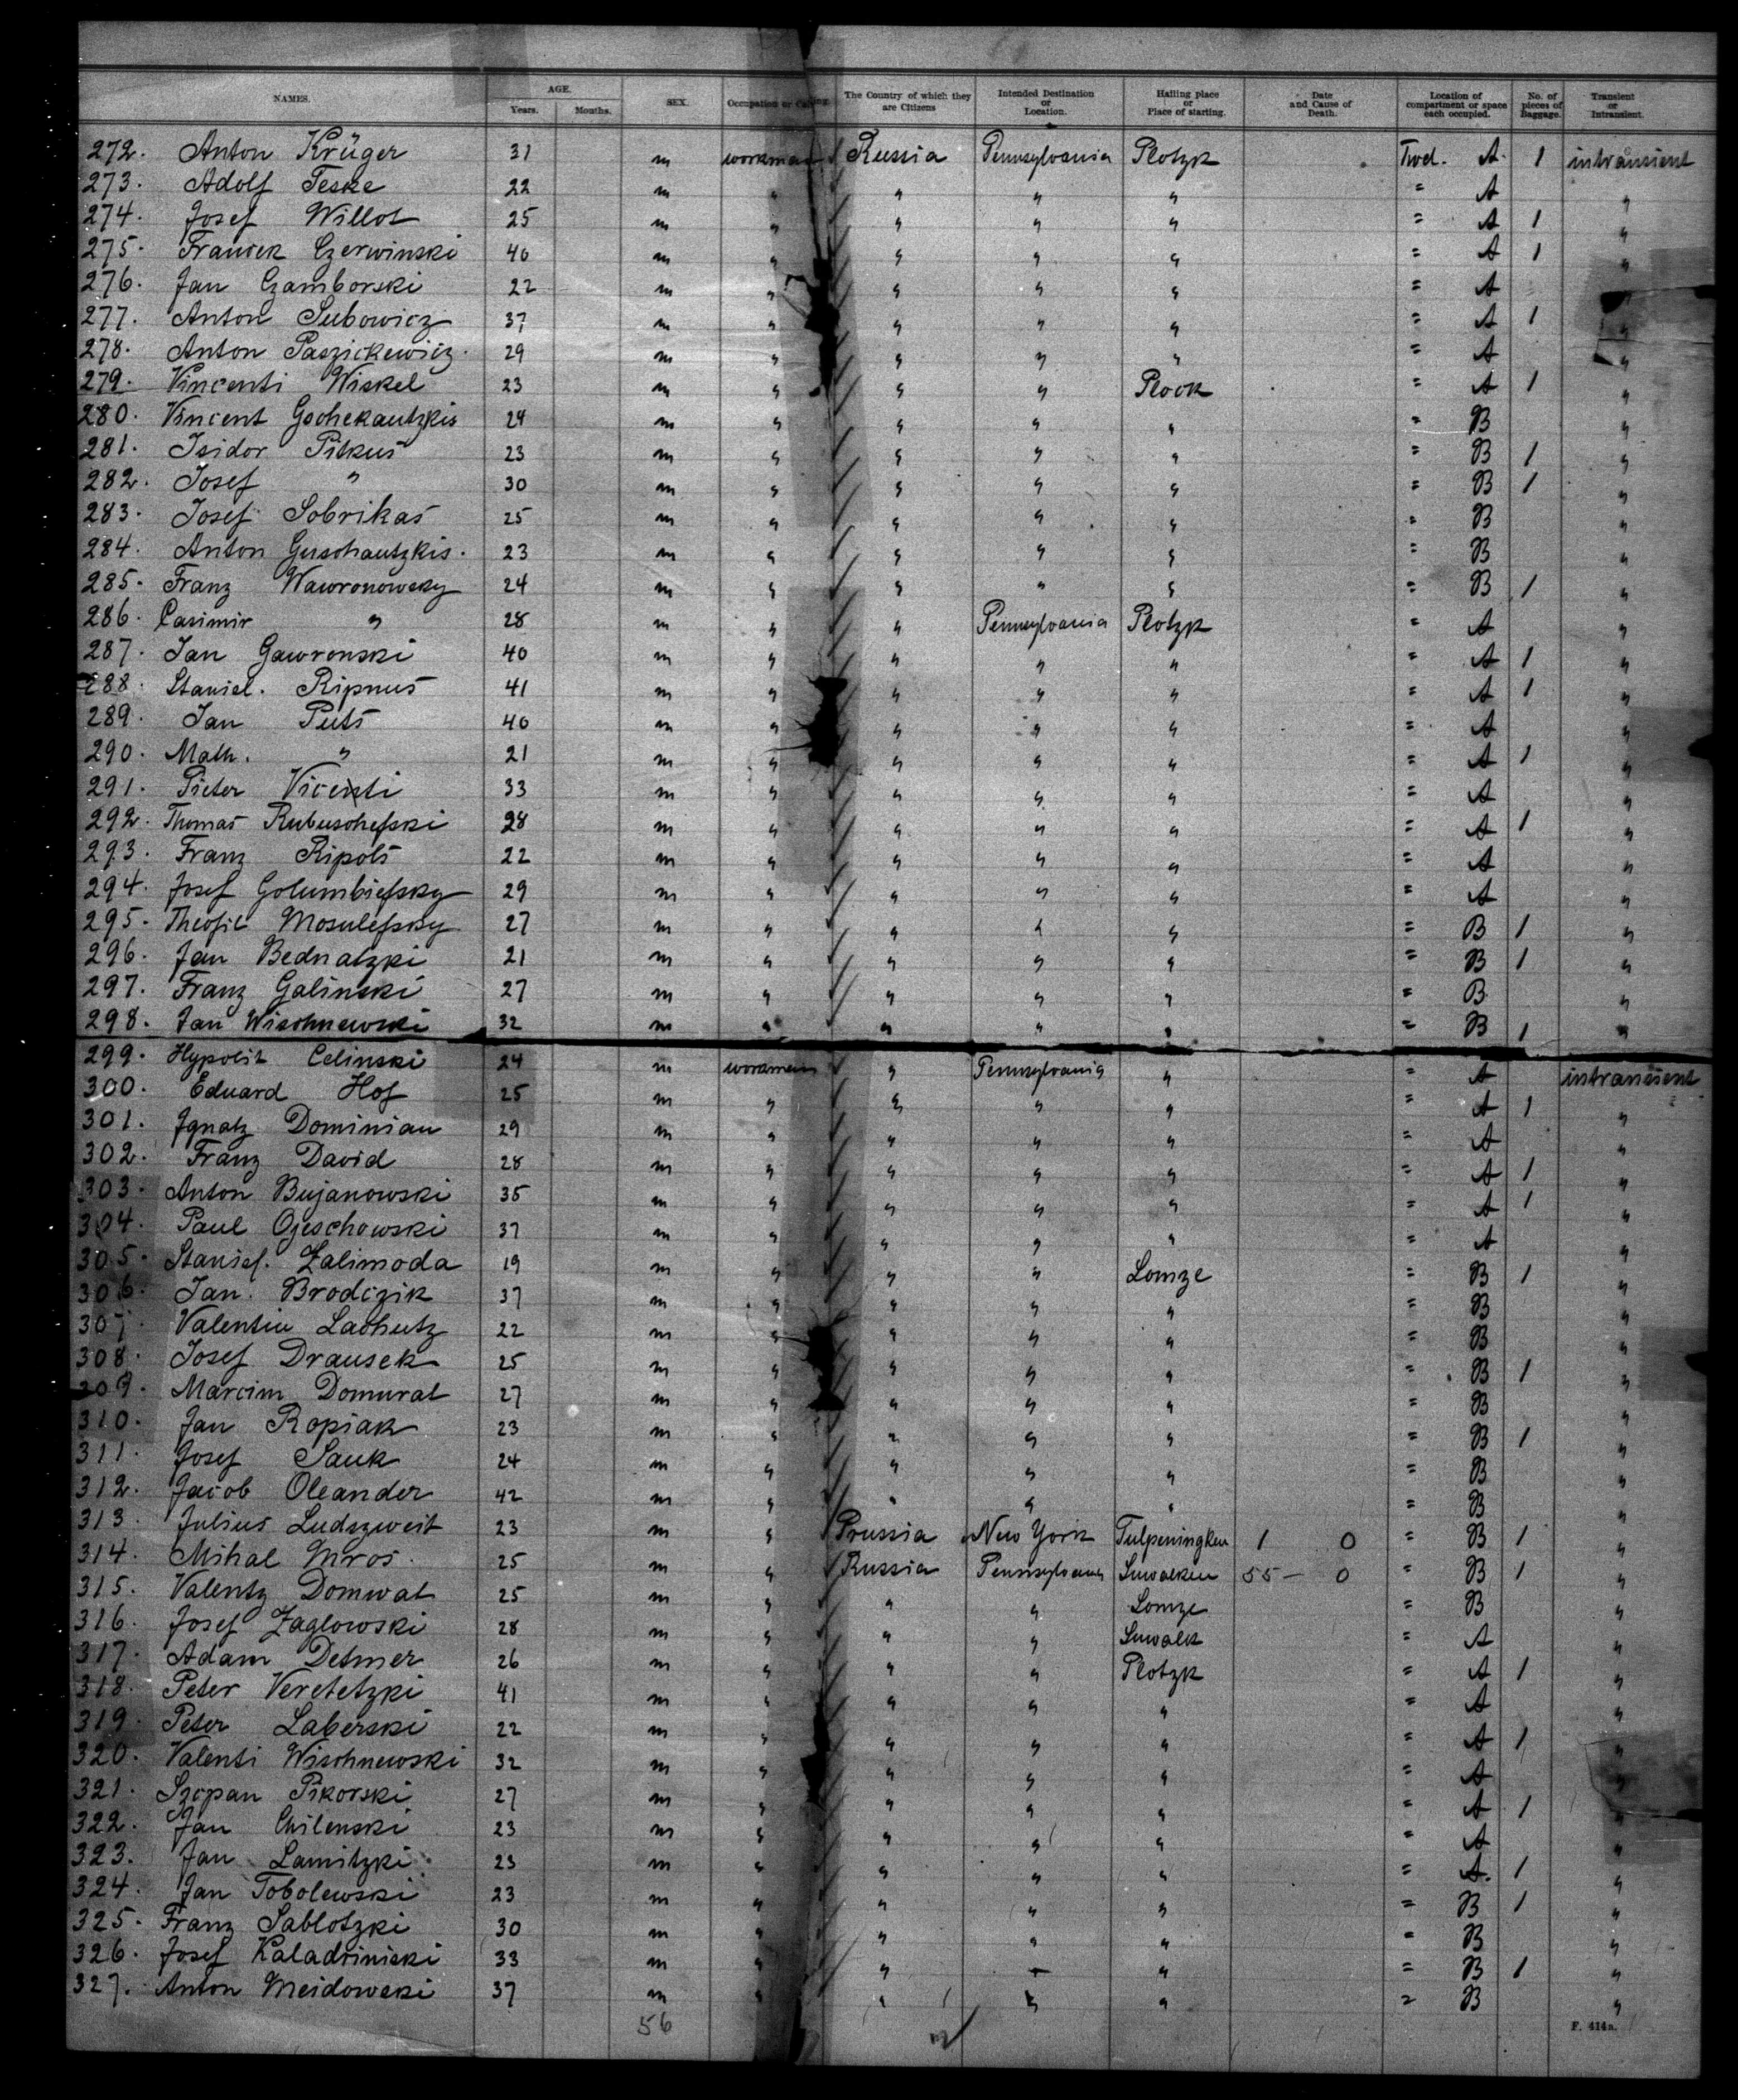 NAMES. AGE. Years. Months. SEX. Occupation or Calling. The Country of which they are Citizens Intended Destination or Location. Hailing place or Place of starting. Date and Cause of Death. Location of compartment or space each occupied. No. of pieces of Baggage. Transient or Intransient.
272. Anton Krüger 31 m workman Russia Pennsylvania Plotzk Twd. A. 1 intransient
273. Adolf Teske 22 m " " " " = A "
274. Josef Willot 25 m " " " " = A 1 "
275. Franciek Czerwinski 40 m " " " " = A 1 "
276. Jan Czamborski 22 m " " " " = A "
277. Anton Subowicz 37 m " " " " = A 1 "
278. Anton Paszickewicz. 29 m " " " " = A "
279. Vincenti Wiskel 23 m " " " Plock = A 1 "
280. Vincent Gschekautzkis 24 m " " " " = B "
281. Isidor Pitkus 23 m " " " " = B 1 "
282. Josef " 30 m " " " " = B 1 "
283. Josef Sobrikas 25 m " " " " = B "
284. Anton Guschautzkis. 23 m " " " " = B "
285. Franz Wawronowsky 24 m " " " " = B 1 "
286. Casimir " 28 m " " Pennsylvania Plotzk = A "
287. Jan Gawronski 40 m " " " " = A 1 "
288. Stanisl. Ripnus 41 m " " " " = A 1 "
289. Jan Puts 40 m " " " " = A "
290. Math. " 21 m " " " " = A 1 "
291. Pieter Vicenti 33 m " " " " = A "
292. Thomas Rubuschefski 28 m " " " " = A 1 "
293. Franz Ripols 22 m " " " " = A "
294. Josef Golumbiefsky 29 m " " " " = A "
295. Theofil Mosulefsky 27 m " " " " = B 1 "
296. Jan Bednatzki 21 m " " " " = B 1 "
297. Franz Galinski 27 m " " " " = B "
298. Jan Wischnewski 32 m " " " " = B 1 "
299. Hypolit Celinski 24 m workman " Pennsylvania " = A intransient
300. Eduard Hof 25 m " " " " = A 1 "
301. Ignatz Dominian 29 m " " " " = A "
302. Franz David 28 m " " " " = A 1 "
303. Anton Bujanowski 35 m " " " " = A 1 "
304. Paul Ojeschowski 37 m " " " " = A "
305. Stanisl. Zalimoda 19 m " " " Lomze = B 1 "
306. Jan. Brodczik 37 m " " " " = B "
307. Valentin Lachutz 22 m " " " " = B "
308. Josef Drausek 25 m " " " " = B 1 "
309. Marcim Domurat 27 m " " " " = B "
310. Jan Ropiak 23 m " " " " = B 1 "
311. Josef Sauk 24 m " " " " = B "
312. Jacob Oleander 42 m " " " " = B "
313. Julius Ludszweit 23 m " Prussia New York Tulpeningken 1 0 = B 1 "
314. Mihal Mros. 25 m " Russia Pennsylvania Suwalken 55 - 0 = B 1 "
315. Valentz Domwat 25 m " " " Lomze = B "
316. Josef Zaglowski 28 m " " " Suwalk = A "
317. Adam Detmer 26 m " " " Plotzk = A 1 "
318. Peter Veretetzki 41 m " " " " = A "
319. Peter Laberski 22 m " " " " = A 1 "
320. Valenti Wischnewski 32 m " " " " = A "
321. Szcpan Pikorski 27 m " " " " = A 1 "
322. Jan Chilenski 23 m " " " " = A "
323. Jan Lamitzki 23 m " " " " = A. 1 "
324. Jan Tobolewski 23 m " " " " = B 1 "
325. Franz Sablotzki 30 m " " " " = B "
326. Josef Kaladriniski 33 m " " " " = B 1 "
327. Anton Meidowski 37 m " " " " = B "
56
F. 414a.